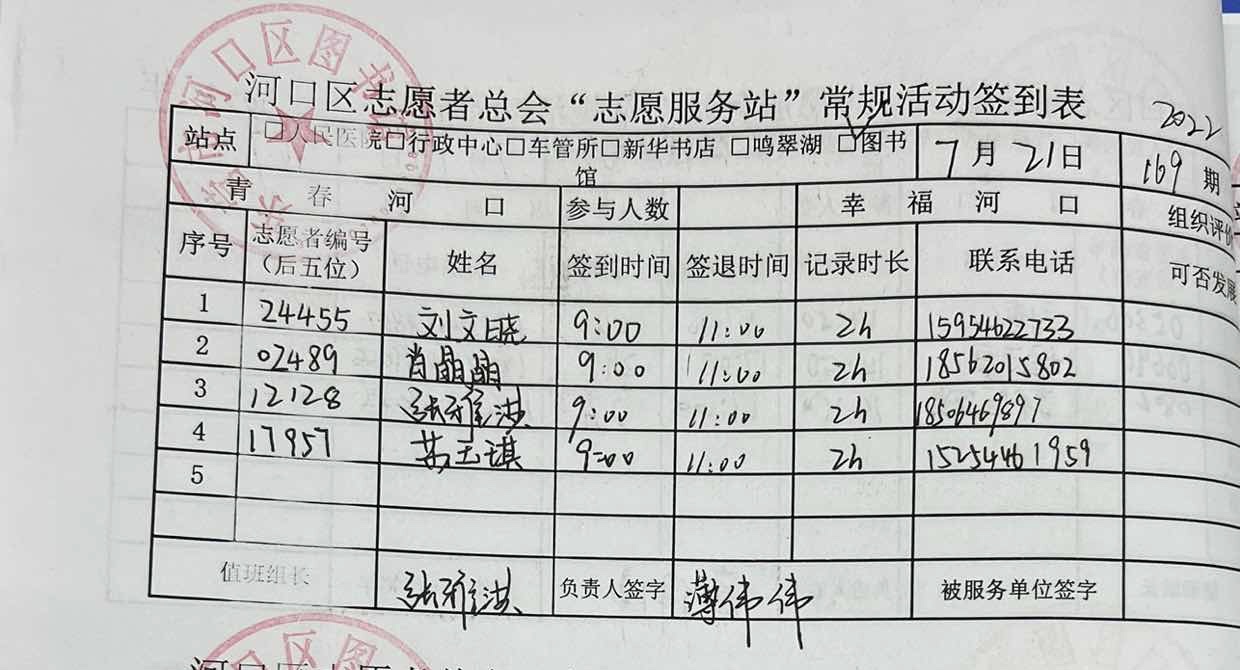 河口区图书
河口区志愿者总会“志愿服务站”常规活动签到表
2022
站点 □人民医院□行政中心□车管所□新华书店 □鸣翠湖 ☑图书馆 7月21日 169期
青春河口 参与人数 幸福河口 组织评价
序号 志愿者编号（后五位） 姓名 签到时间 签退时间 记录时长 联系电话 可否发展
1 24455 刘文晓 9:00 11:00 2h 15954622733
2 02489 肖晶晶 9:00 11:00 2h 18562015802
3 12128 张雅洪 9:00 11:00 2h 18506469897
4 17957 玉琪 9:00 11:00 2h 15254461959
5
值班组长 张雅洪 负责人签字 薄伟伟 被服务单位签字